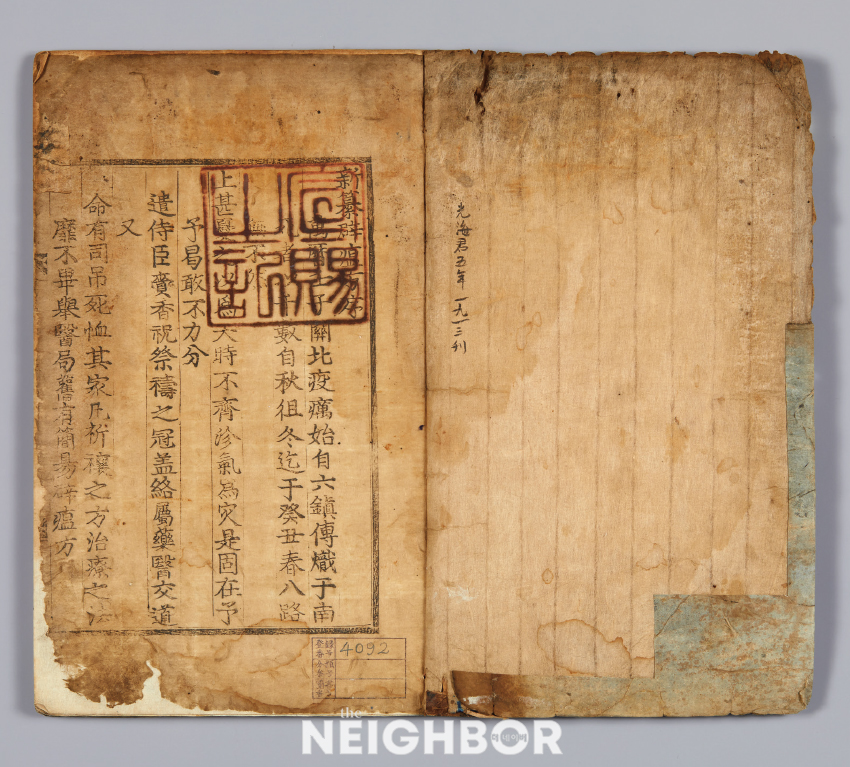 光海君五年 一九一三刊
新纂辟瘟方序
關北疫癘始自六鎭傳熾于南
數自秋徂冬迄于癸丑春八路
上甚
天時不齊沴氣為灾是固在予
予曷敢不力分
遣侍臣賫香祝祭禱之冠盖絡屬藥醫交道
又
命有司吊死恤其家凡祈禳之方治療之法
靡不畢舉醫局舊有簡易辟瘟方
宣賜之記
4092
the
NEIGHBOR
더 네이버